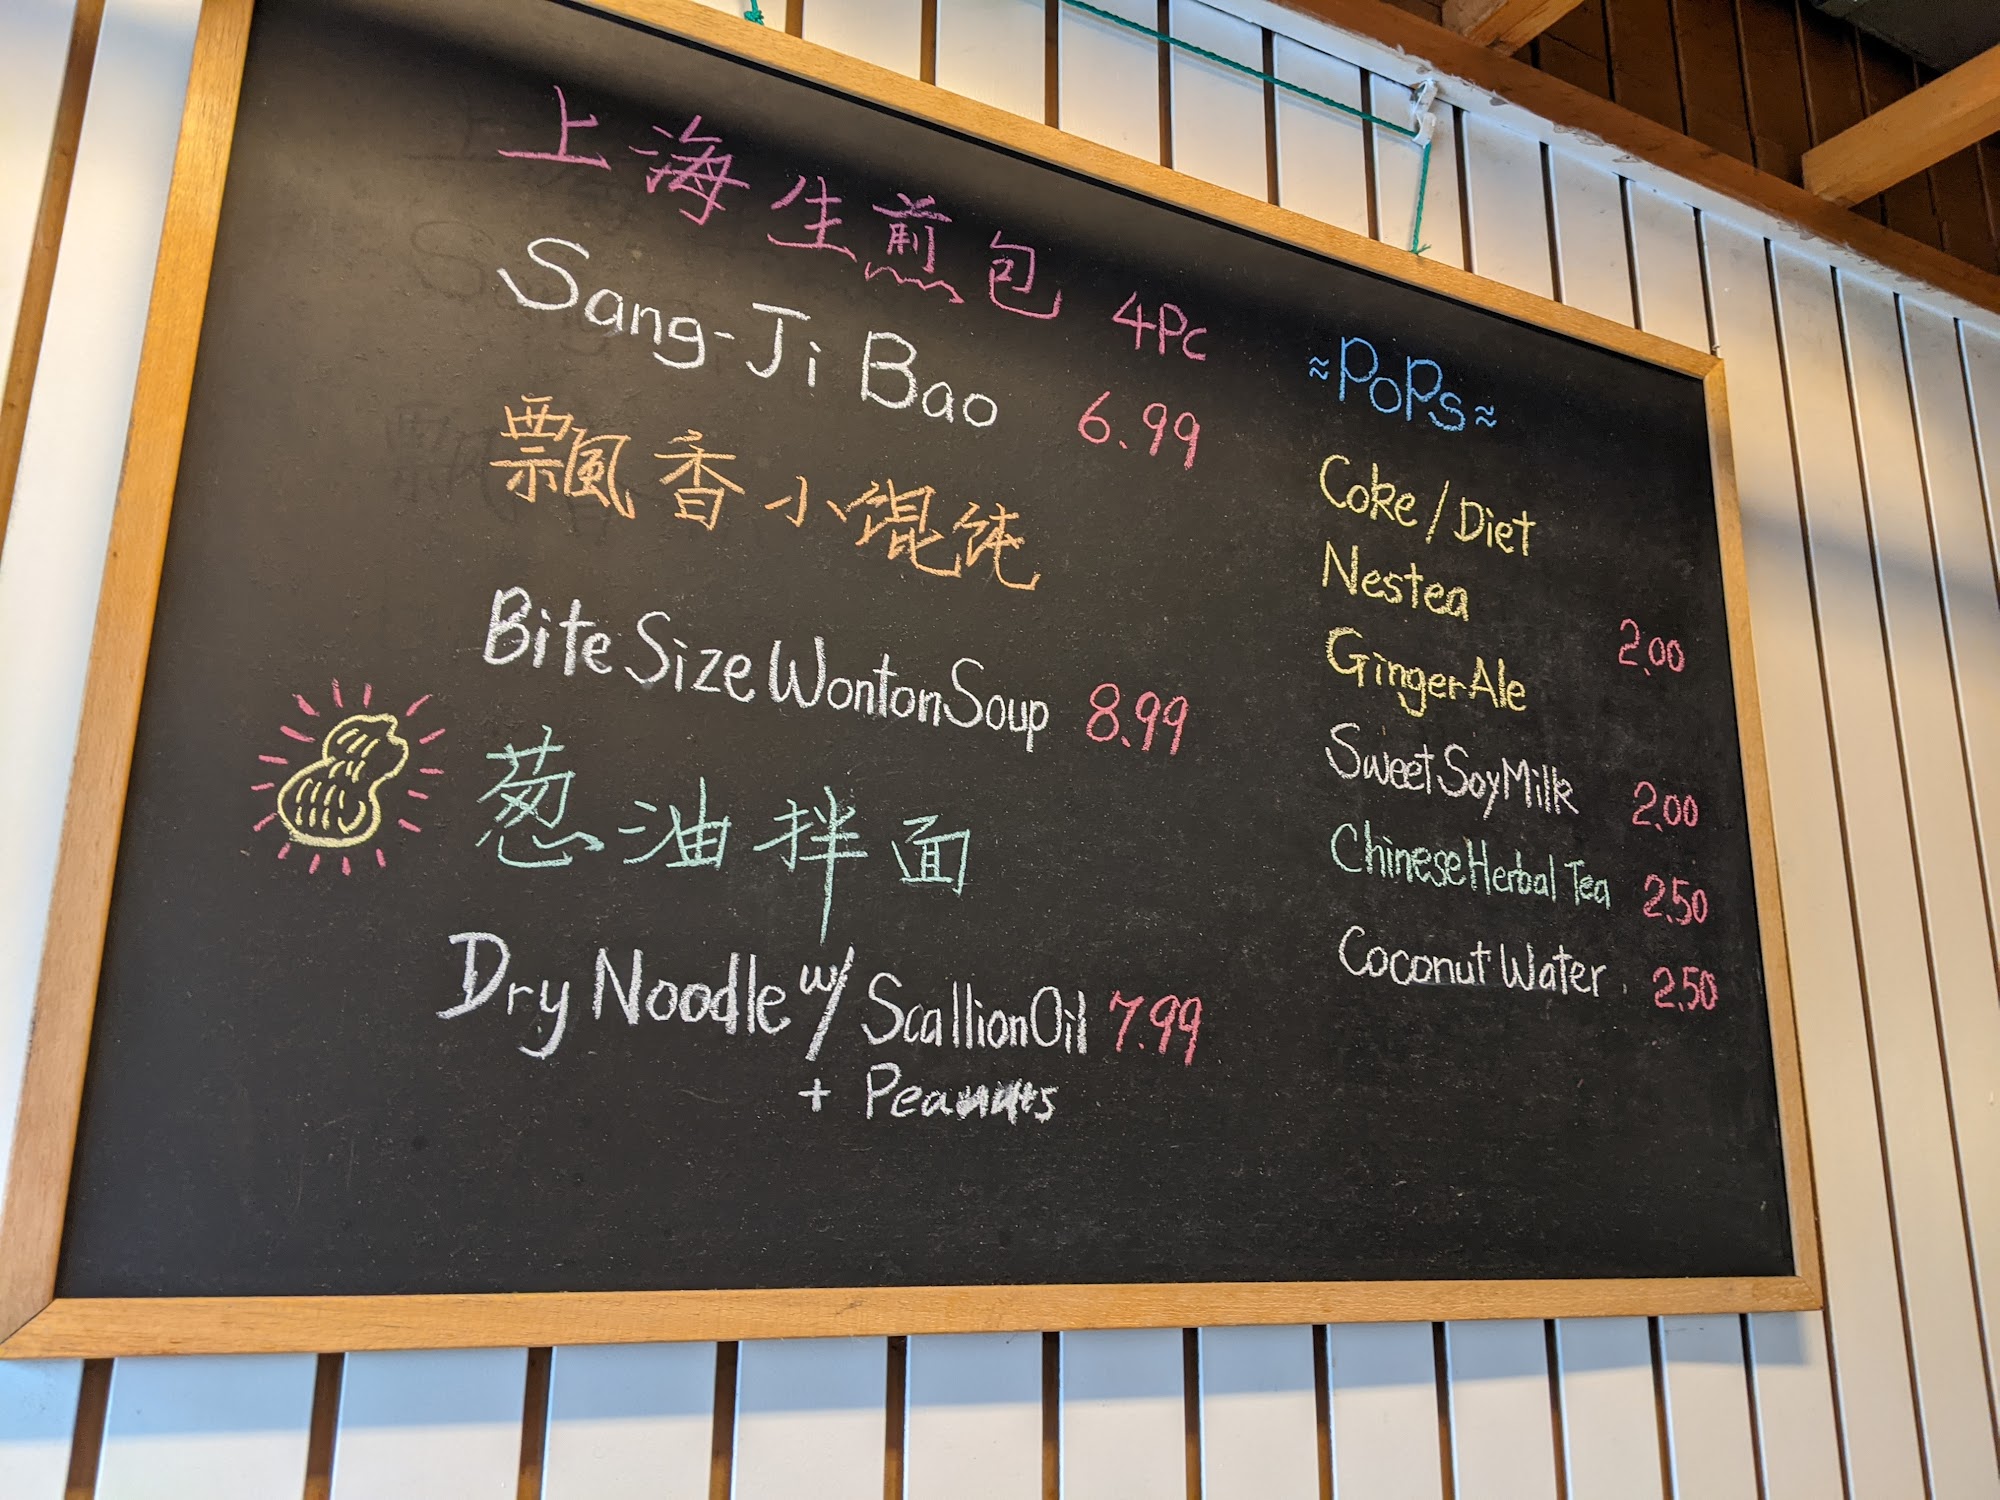 上海生煎包 4Pc
Sang-Ji Bao 6.99
飄香小馄饨
Bite Size Wonton Soup 8.99
葱油拌面
Dry Noodle w/ Scallion Oil 7.99
+ Peanuts
≈POPs≈
Coke / Diet
Nestea
Ginger Ale
2.00
Sweet Soy Milk 2.00
Chinese Herbal Tea 2.50
Coconut Water 2.50